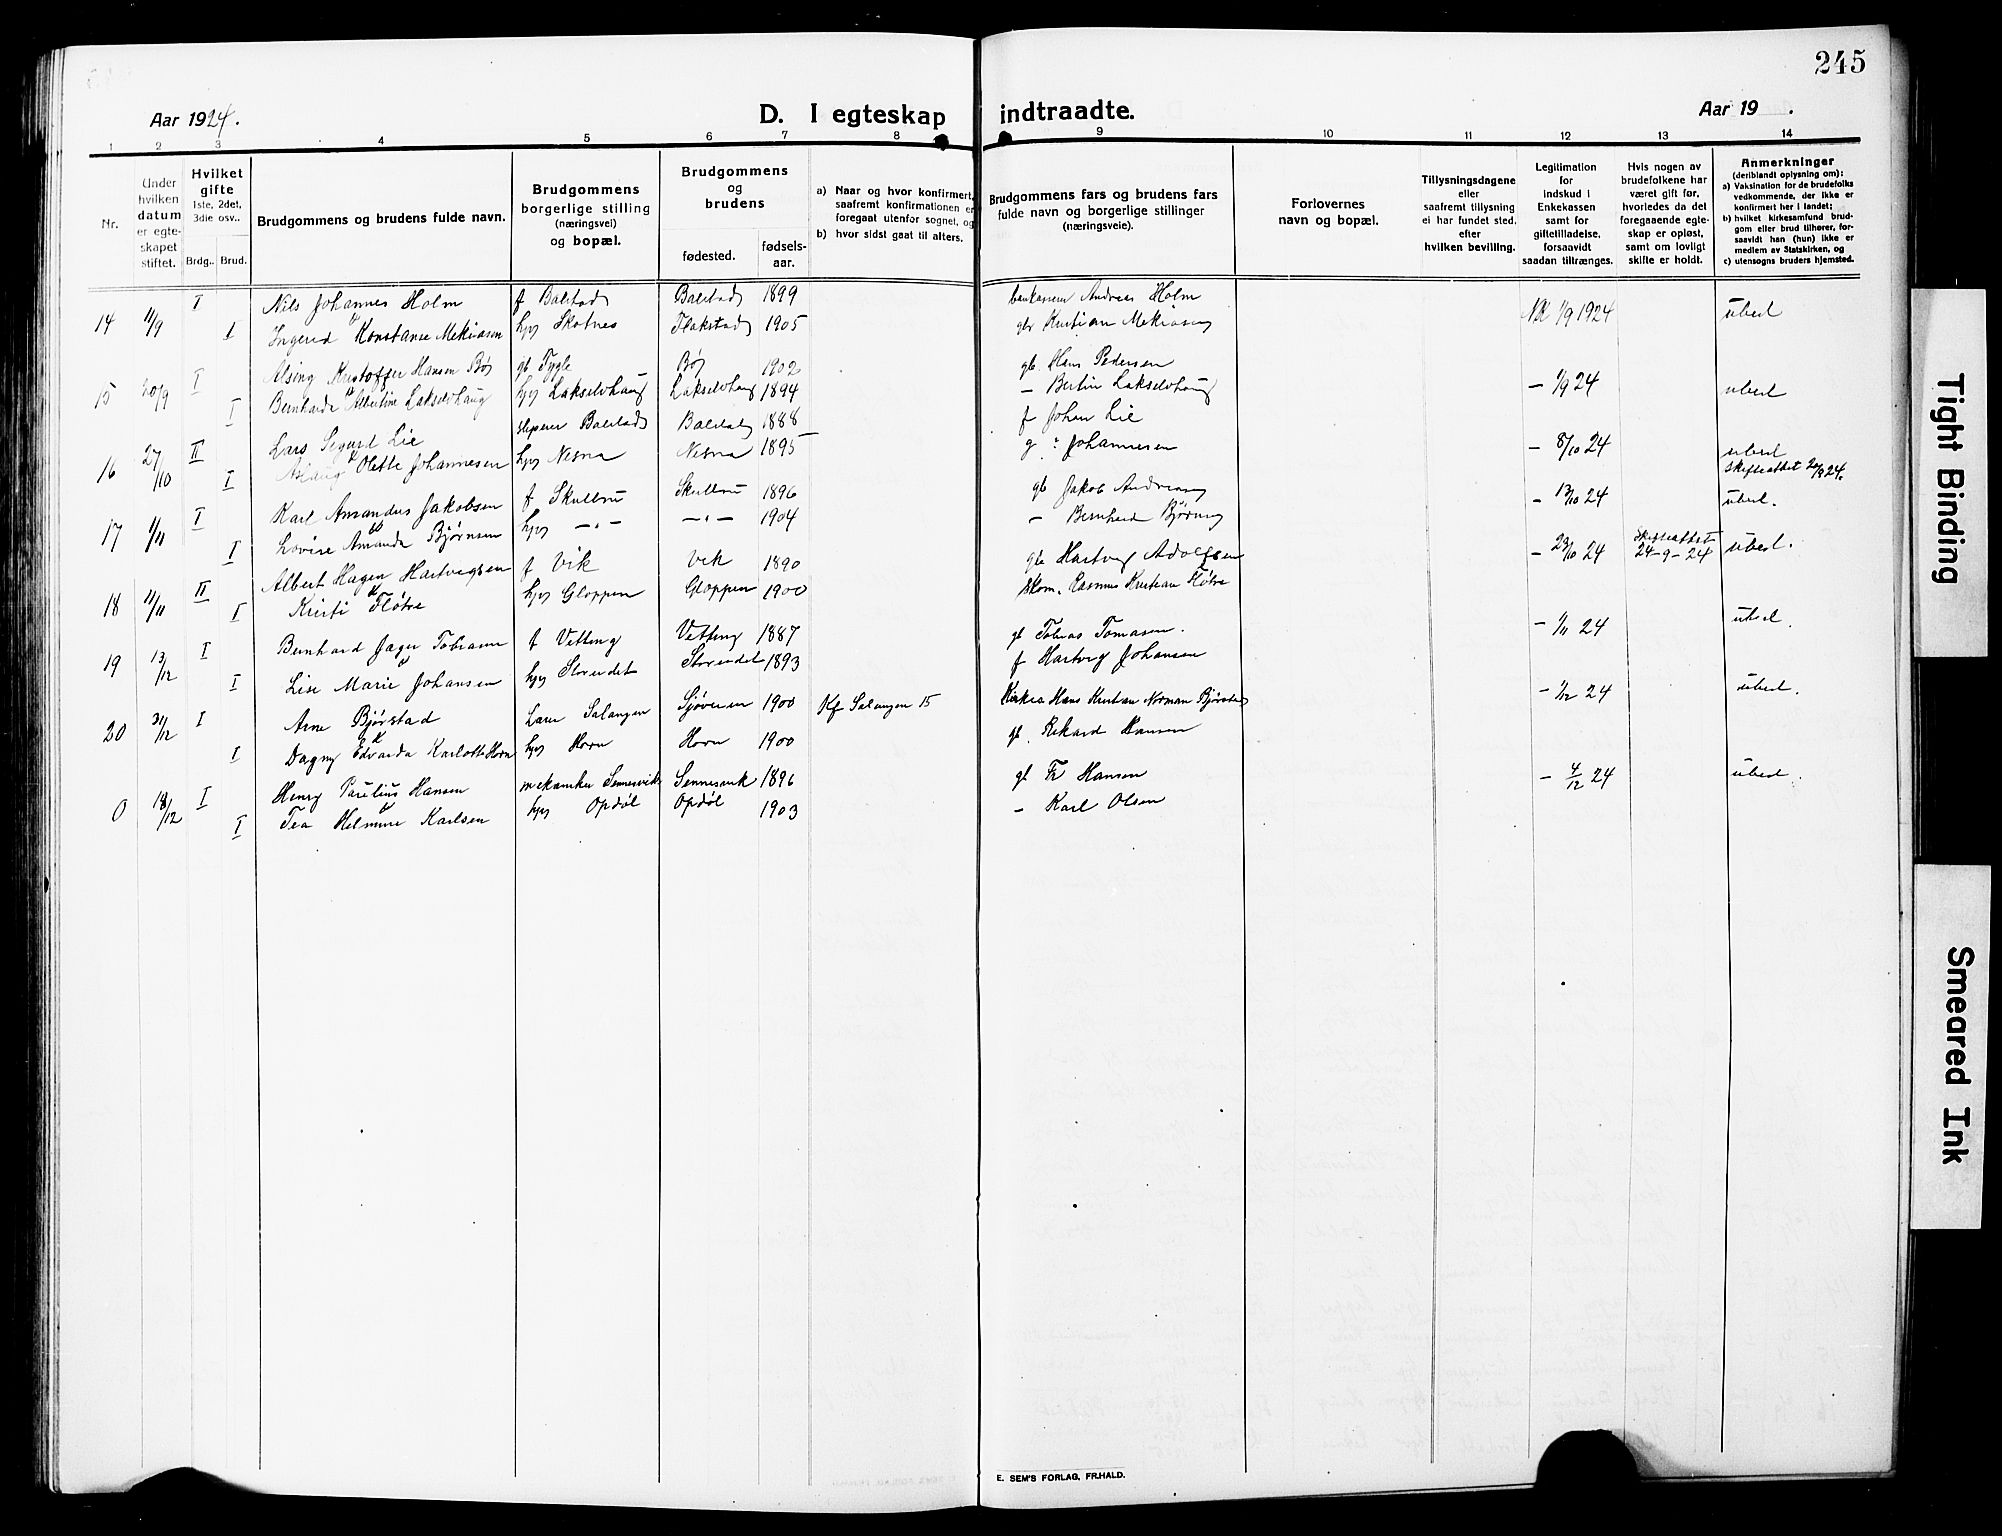 245
Aar 1924.
D. I egteskap indtraadte.
Aar 19 .
1 2 3 4 5 6 7 8 9 10 11 12 13 14
Nr.
Under hvilken datum er egte-skapet stiftet.
Hvilket gifte 1ste, 2det, 3die osv..
Brdg.. Brud.
Brudgommens og brudens fulde navn.
Brudgommens borgerlige stilling (næringsvei) og bopæl.
Brudgommens og brudens
fødested. fødsels-aar.
a) Naar og hvor konfirmert, saafremt konfirmationen er foregaat utenfor sognet, og
b) hvor sidst gaat til alters.
Brudgommens fars og brudens fars fulde navn og borgerlige stillinger (næringsveie).
Forlovernes navn og bopæl.
Tillysningsdagene eller saafremt tillysning ei har fundet sted, efter hvilken bevilling.
Legitimation for indskud i Enkekassen samt for giftetilladelse, forsaavidt saadan tiltrænges.
Hvis nogen av brudefolkene har været gift før, hvorledes da det foregaaende egte-skap er opløst, samt om lovligt skifte er holdt.
Anmerkninger (deriblandt oplysning om):
a) Vaksination for de brudefolks vedkommende, der ikke er konfirmert her i landet;
b) hvilket kirkesamfund brud-gom eller brud tilhører, for-saavidt han (hun) ikke er medlem av Statskirken, og
c) utensogns bruders hjemsted.
14 11/9 I Nils Johannes Holm f Balstad Balstad 1899 Andreas Holm 1/9 1924 ubesl
I Ingerid Konstanse Mekiasen hjg Skotnes Flakstad 1905 gb Kristian Mekiasen
15 20/9 I Alsing Kristoffer Hansen Bø gb Tygle Bø 1902 gb. Hans Pedersen — 1/9 24 ubesl
I Bernharde Albertine Lakselvhaug hjg Lakselvhaug Lakselvhaug 1894 — Bertin Lakselvhaug
16 27/10 II Lars Sigurd Lie skipperer Balstad Balstad 1888 f Johan Lie — 8/10 24 ubesl
I Aslaug Olette Johannesen hjg Nesna Nesna 1895 g. ? Johannesen skifteattst 20/9 24.
17 1/11 I Karl Amandus Jakobsen f Skullbru Skullbru 1896 gb Jakob Andreasen — 13/10 24 ubesl.
I Lovise Amanda Bjørnsen hjg —"— —"— 1904 — Bernhard Bjørnsen
18 11/11 II Albert Hagen Hartvigsen f Vik Vik 1890 gb Hartvig Adolfsen — 23/10 24 Skifteattest 24-9-24 ubesl.
I Kristi Fløtre hjg Gloppen Gloppen 1900 skom. Rasmus Kristian Fløtre
19 13/12 I Bernhard Jager Tobiassen f Vetting Vetting 1887 gb Tobias Tomasen. — 1/11 24 ubesl.
I Lise Marie Johansen hjg Storeidet Storeidet 1893 f Hartvig Johansen
20 31/12 I Arne Bjørstad Lærer Salangen Sjøveien 1900 Kf Salangen 15 Hans Kristian Norman Bjørstad — 1/12 24 ubesl.
I Dagny Edvarda Karlotte Horn hjg Horn Horn 1900 gb. Rikard Hansen
0 18/12 I Henry Paulius Hansen mekaniker Sennesvik Sennesvik 1896 gb Fr Hansen — 4/12 24 ubesl.
I Tea Helmine Karlsen hjg Opdøl Opdøl 1903 — Karl Olsen
E. SEM'S FORLAG, FR.HALD.
Tight Binding
Smeared Ink